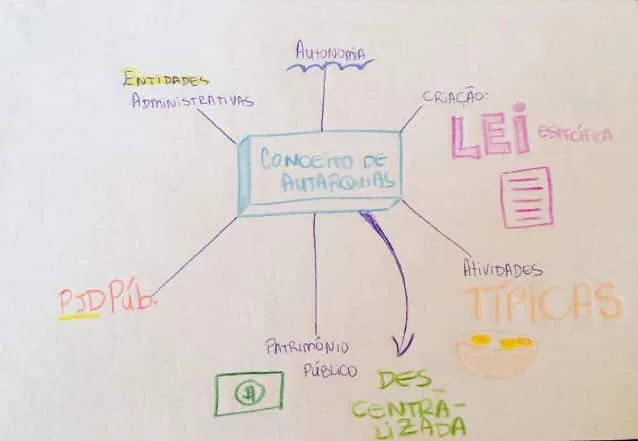 AUTONOMIA
ENTIDADES
ADMINISTRATIVAS
CRIAÇÃO:
LEI ESPECÍFICA
CONCEITO DE
AUTARQUIAS
ATIVIDADES
TÍPICAS
PJD PÚB.
PATRIMÔNIO
PÚBLICO
DES_
CENTRA-
LIZADA